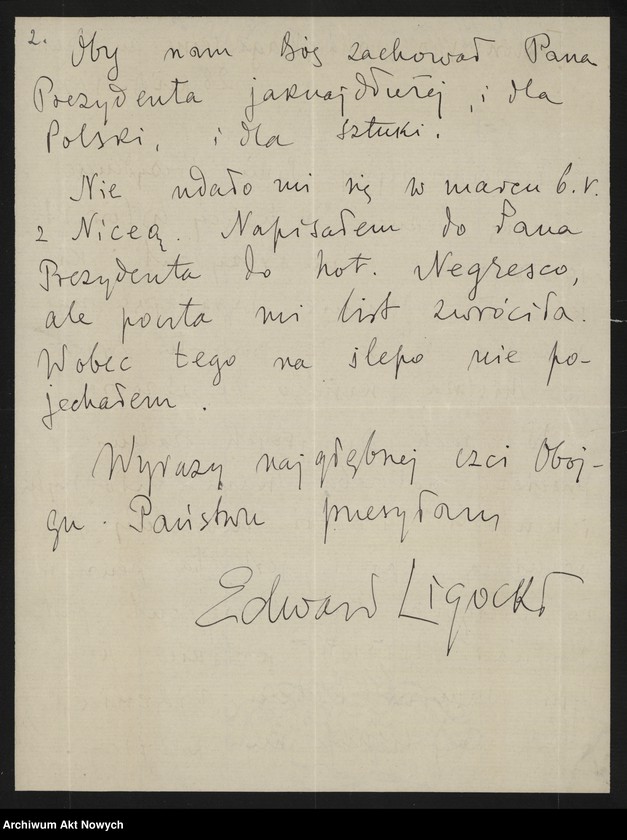 2.
Oby nam Bóg zachował Pana
Prezydenta jaknajdłużej, i dla
Polski, i dla sztuki.
Nie udało mi się w marcu b.r.
z Niceą. Napisałem do Pana
Prezydenta do hot. Negresco,
ale poczta mi list zwróciła.
Wobec tego na ślepo nie po-
jechałem.
Wyrazy najgłębszej czci Oboj-
gu Państwu przesyłam
Edward Ligocki
Archiwum Akt Nowych